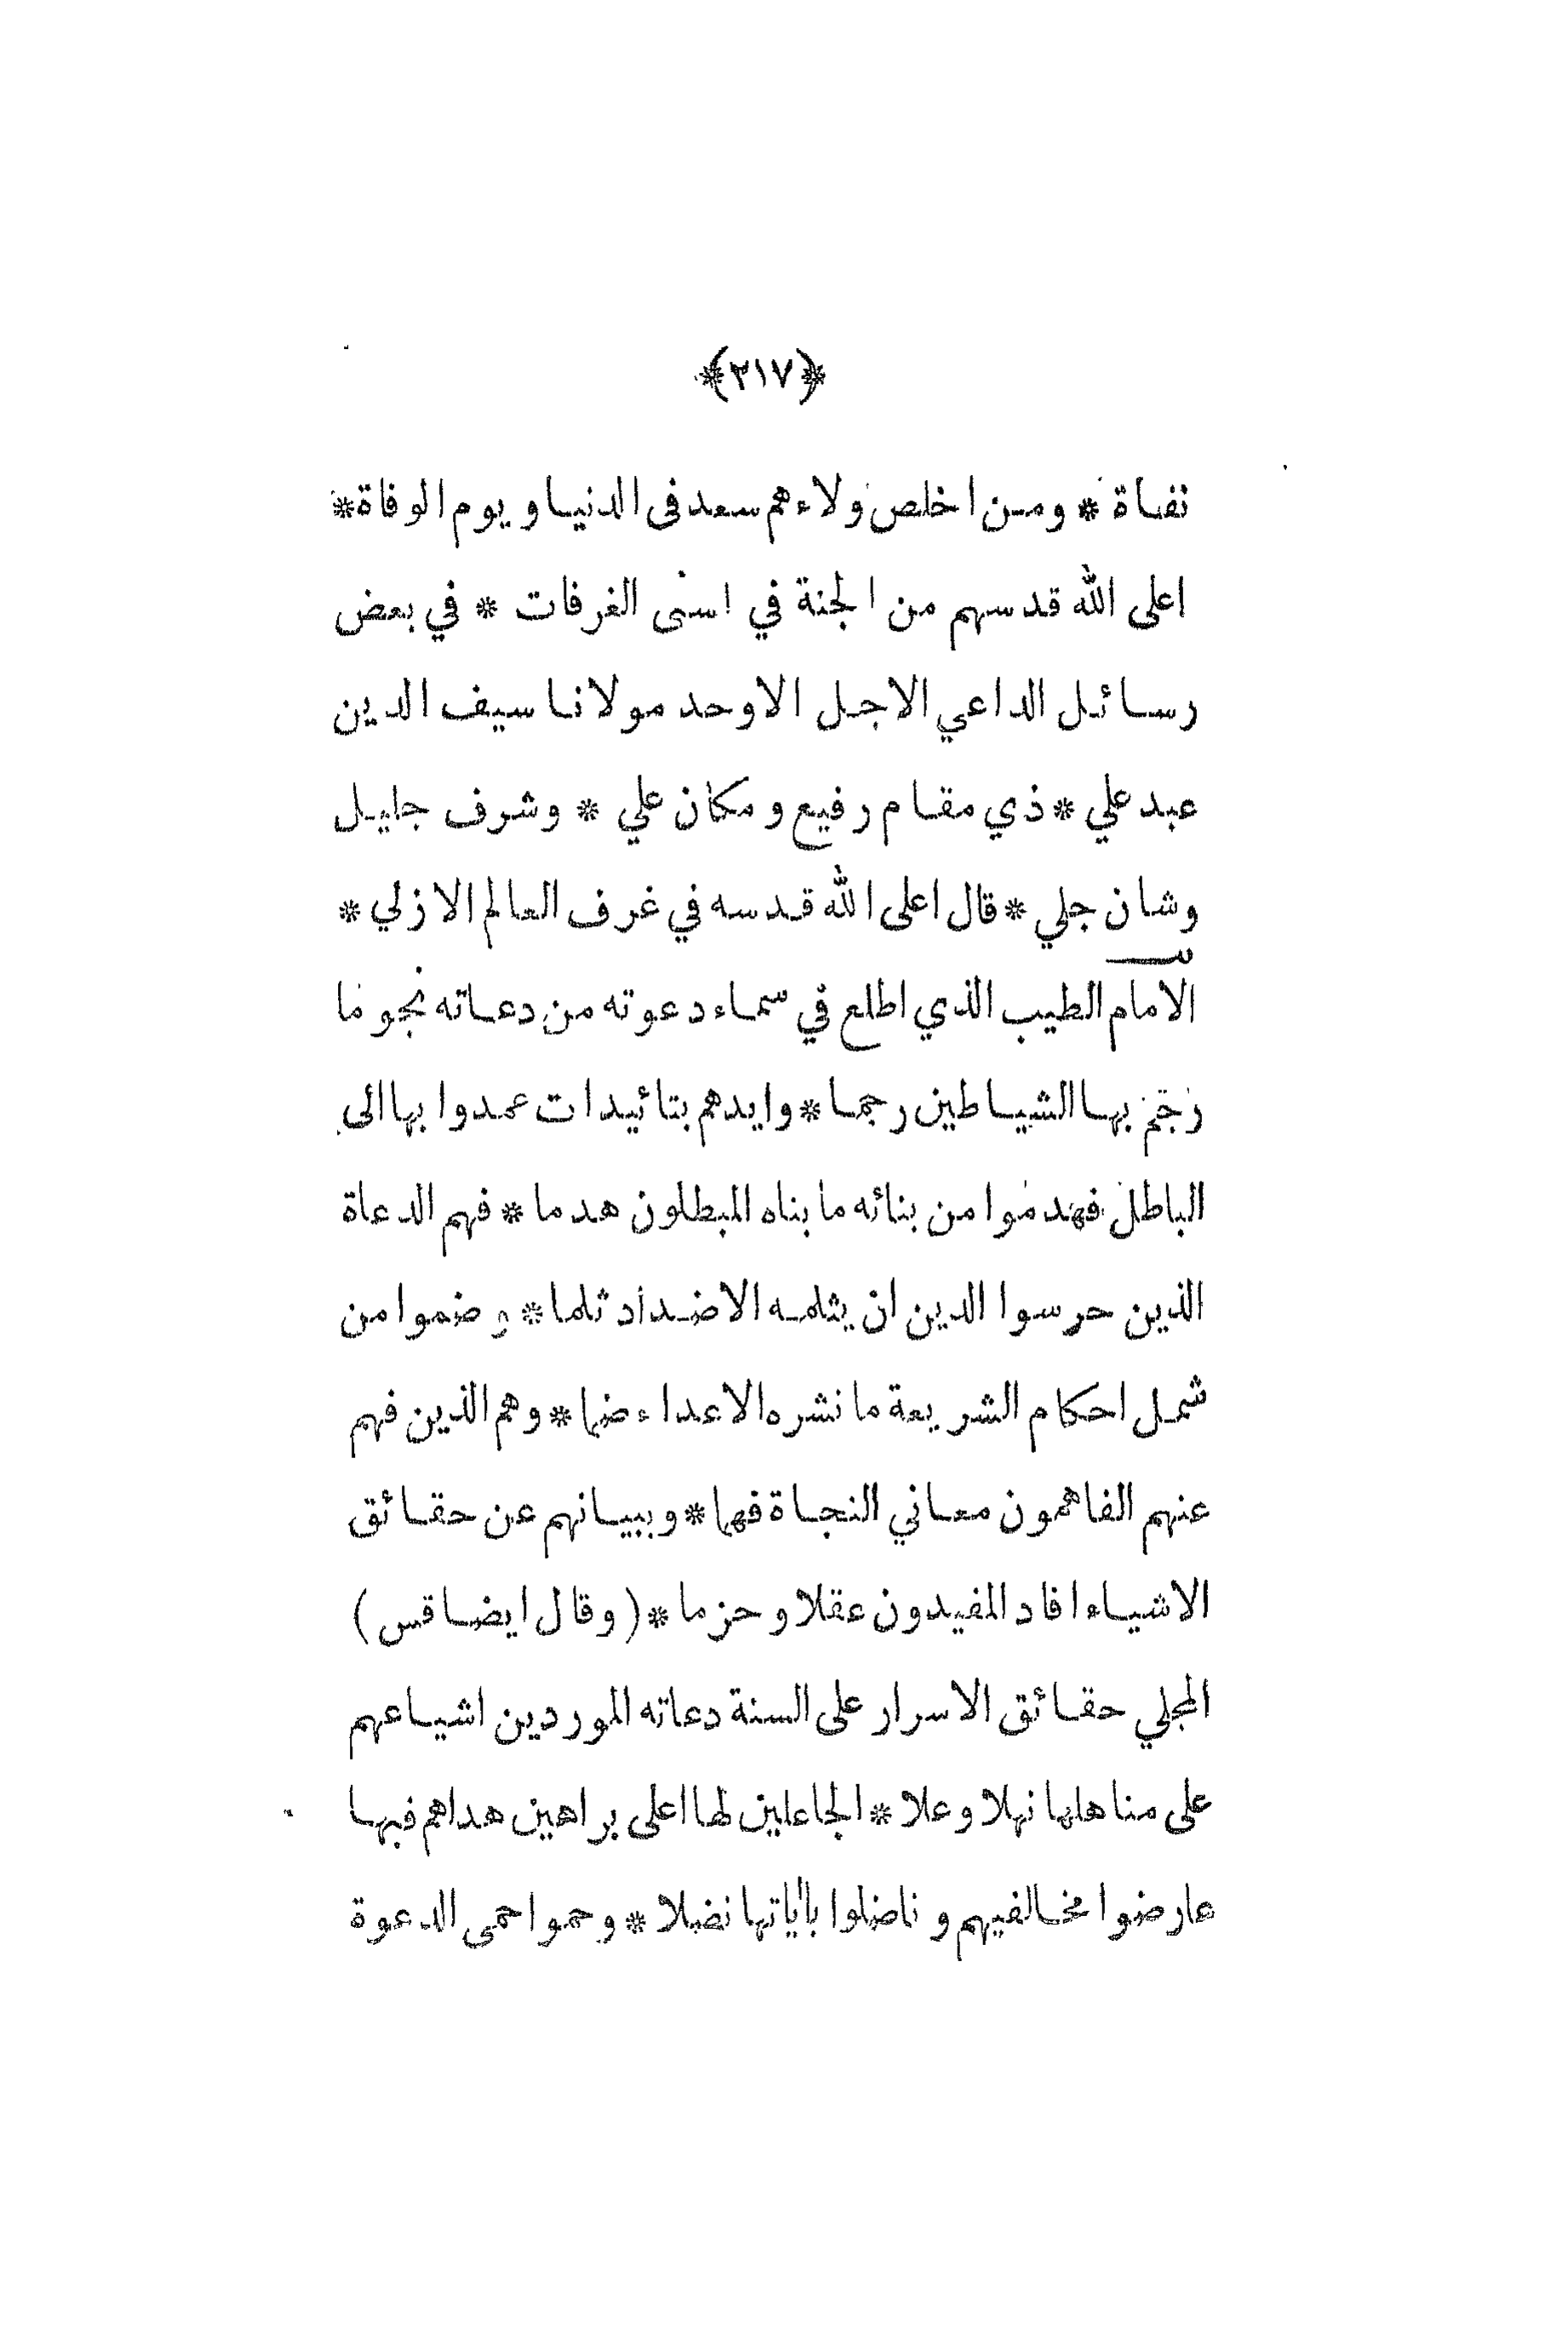 ﴿٢١٧﴾
نفاة * ومن اخلص ولاءهم سعد فى الدنيا ويوم الوفاة *
اعلى الله قدسهم من الجنة في اسنى الغرفات * في بعض
رسائل الداعي الاجل الاوحد مولانا سيف الدين
عبد علي * ذي مقام رفيع ومكان علي * وشرف جليل
وشان جلي * قال اعلى الله قدسه في غرف العالم الازلي *
الامام الطيب الذي اطلع في سماء دعوته من دعاته نجوما
رجم بها الشياطين رجما * وايدهم بتائيدات عمدوا بها الى
الباطل فهدموا من بنائه ما بناه المبطلون هدما * فهم الدعاة
الذين حرسوا الدين ان يثلمه الاضداد ثلما * وضموا من
شمل احكام الشريعة ما نشره الاعداء ضما * وهم الذين فهم
عنهم الفاهمون معاني النجاة فهما * وببيانهم عن حقائق
الاشياء افاد المفيدون عقلا وحزما * (وقال ايضا قس)
المجلي حقائق الاسرار على السنة دعاته الموردين اشياعهم
على مناهلها نهلا وعلا * الجاعلين لها اعلى براهين هداهم فبها
عارضوا مخالفيهم وناضلوا باٰياتها نضلا * وحموا حمى الدعوة